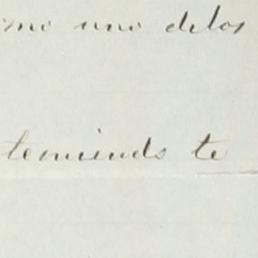 mo uno delos
temiendo te